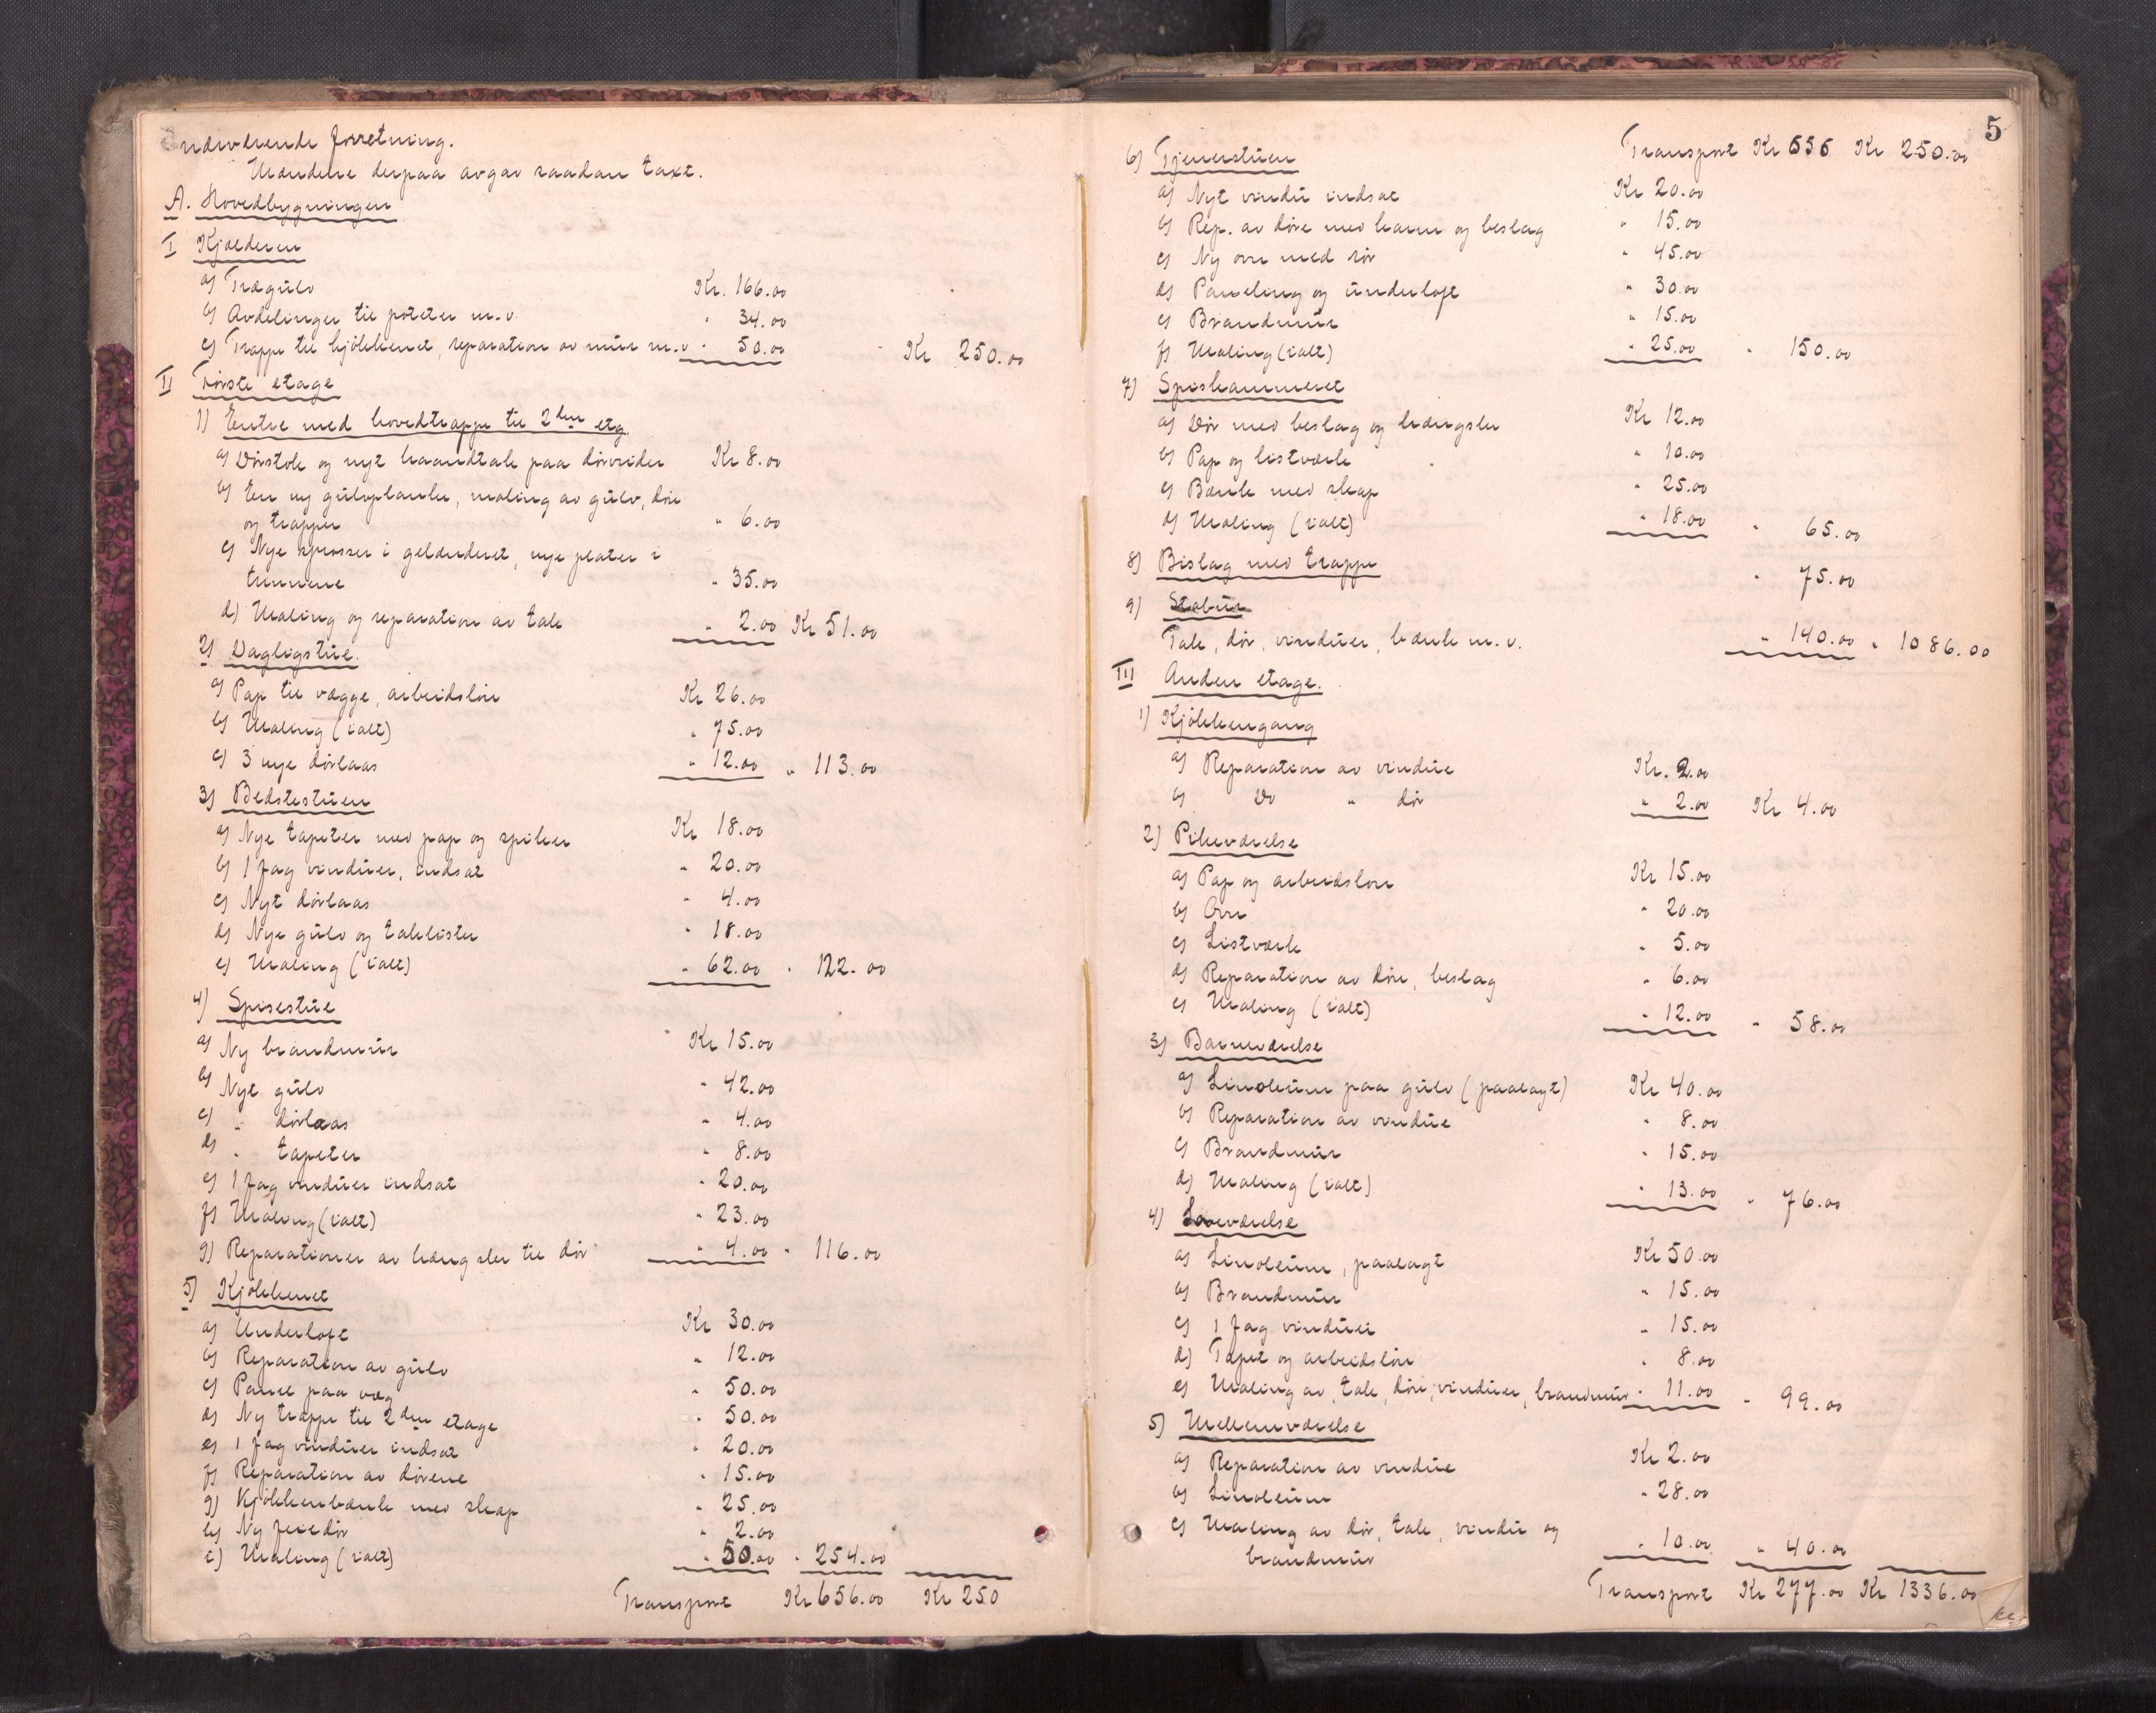 nærværende forretning.
Mændene derpaa avgav saadan taxt.
A. Hovedbygningen
I Kjælderen
a) Trægulv Kr. 166.00
b) Avdelinger til poteter m.v. " 34.00
c) Trappe til kjøkkenet, reparation av mur m.v. " 50.00 " Kr 250.00
II Første etage
1) Entre med hovedtrappe til 2den etg.
a) Dørstok og nyt haandtak paa dørvrider Kr 8.00
b) En ny gulvplanke, maling av gulv, dør
og trapper " 6.00
c) Nye sprosser i gelænderet, nye plater i
trinnene " 35.00
d) Maling og reparation av tak " 2.00 Kr 51.00
2) Dagligstue.
a) Pap til vægge, arbeidsløn Kr 26.00
b) Maling (ialt) " 75.00
c) 3 nye dørlaas " 12.00 " 113.00
3) Bedstestuen
a) Nye tapeter med pap og spiker Kr 18.00
b) 1 fag vinduer, indsat " 20.00
c) Nyt dørlaas " 4.00
d) Nye gulv og taklister " 18.00
e) Maling (ialt) " 62.00 " 122.00
4) Spisestue
a) Ny brandmur Kr 15.00
b) Nyt gulv " 42.00
c) " dørlaas " 4.00
d) " tapeter " 8.00
e) 1 fag vinduer indsat " 20.00
f) Maling (ialt) " 23.00
g) Reparationer av hængsler til dør " 4.00 " 116.00
5) Kjøkkenet
a) Underloft Kr 30.00
b) Reparation av gulv " 12.00
c) Panel paa væg " 50.00
d) Ny trappe til 2den etage " 50.00
e) 1 fag vinduer indsat " 20.00
f) Reparation av dørene " 15.00
g) Kjøkkenbænk med skap " 25.00
h) Ny feiedør " 2.00
i) Maling (ialt) " 50.00 " 254.00
Transport Kr 656.00 Kr 250
5
Transport Kr 656 Kr 250.00
6) Tjenerstuen
a) Nyt vindu indsat Kr 20.00
b) Rep. av døre med karm og beslag " 15.00
c) Ny ovn med rør " 45.00
d) Paneling og underloft " 30.00
e) Brandmur " 15.00
f) Maling (ialt) " 25.00 " 150.00
7) Spiskammeret
a) Dør med beslag og hængsler Kr 12.00
b) Pap og listverk " 10.00
c) Bænk med skap " 25.00
d) Maling (ialt) " 18.00 " 65.00
8) Bislag med trappe " 75.00
9) Stabur
Tak, dør, vinduer, bænk m.v. " 140.00 " 1086.00
III Anden etage.
1) Kjøkkengang
a) Reparation av vindue Kr. 2.00
b) Do " dør " 2.00 Kr 4.00
2) Pikeværelse
a) Pap og arbeidsløn Kr 15.00
b) Ovn " 20.00
c) Listverk " 5.00
d) Reparation av dør, beslag " 6.00
e) Maling (ialt) " 12.00 " 58.00
3) Barneværelse
a) Linoleum paa gulv (paalagt) Kr 40.00
b) Reparation av vindue " 8.00
c) Brandmur " 15.00
d) Maling (ialt) " 13.00 " 76.00
4) Soveværelse
a) Linoleum, paalagt Kr 50.00
b) Brandmur " 15.00
c) 1 fag vinduer " 15.00
d) Tapet og arbeidsløn " 8.00
e) Maling av tak, dør, vinduer, brandmur " 11.00 " 99.00
5) Mellemværelse
a) Reparation av vindue Kr 2.00
b) Linoleum " 28.00
c) Maling av dør, tak, vindu og
brandmur " 10.00 " 40.00
Transport Kr 277.00 Kr 1336.00